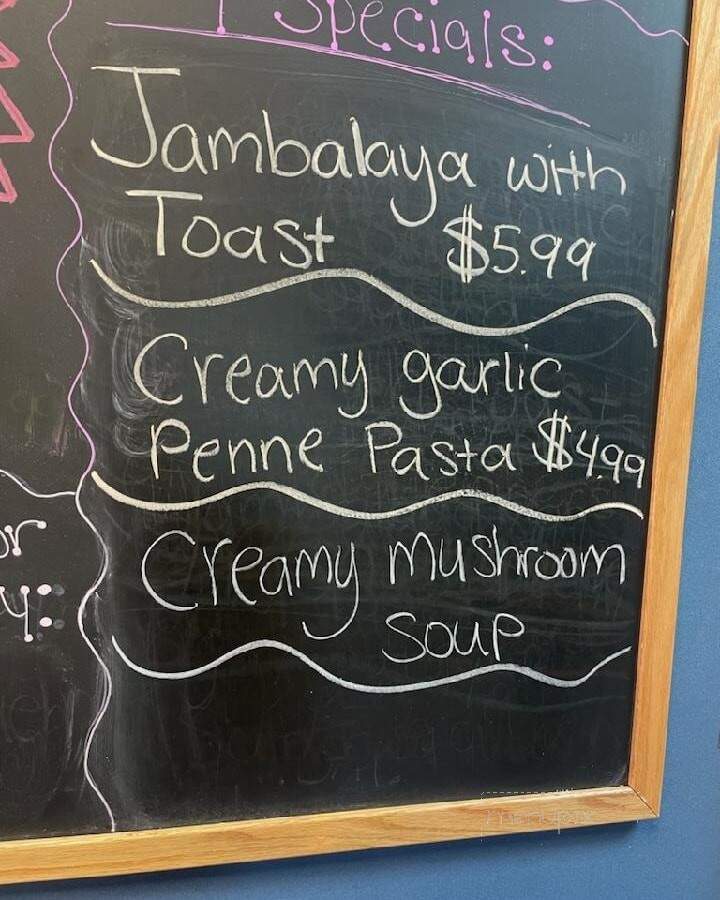 Specials:
Jambalaya with
Toast $5.99
Creamy garlic
Penne Pasta $4.99
Creamy mushroom
soup
or
y: